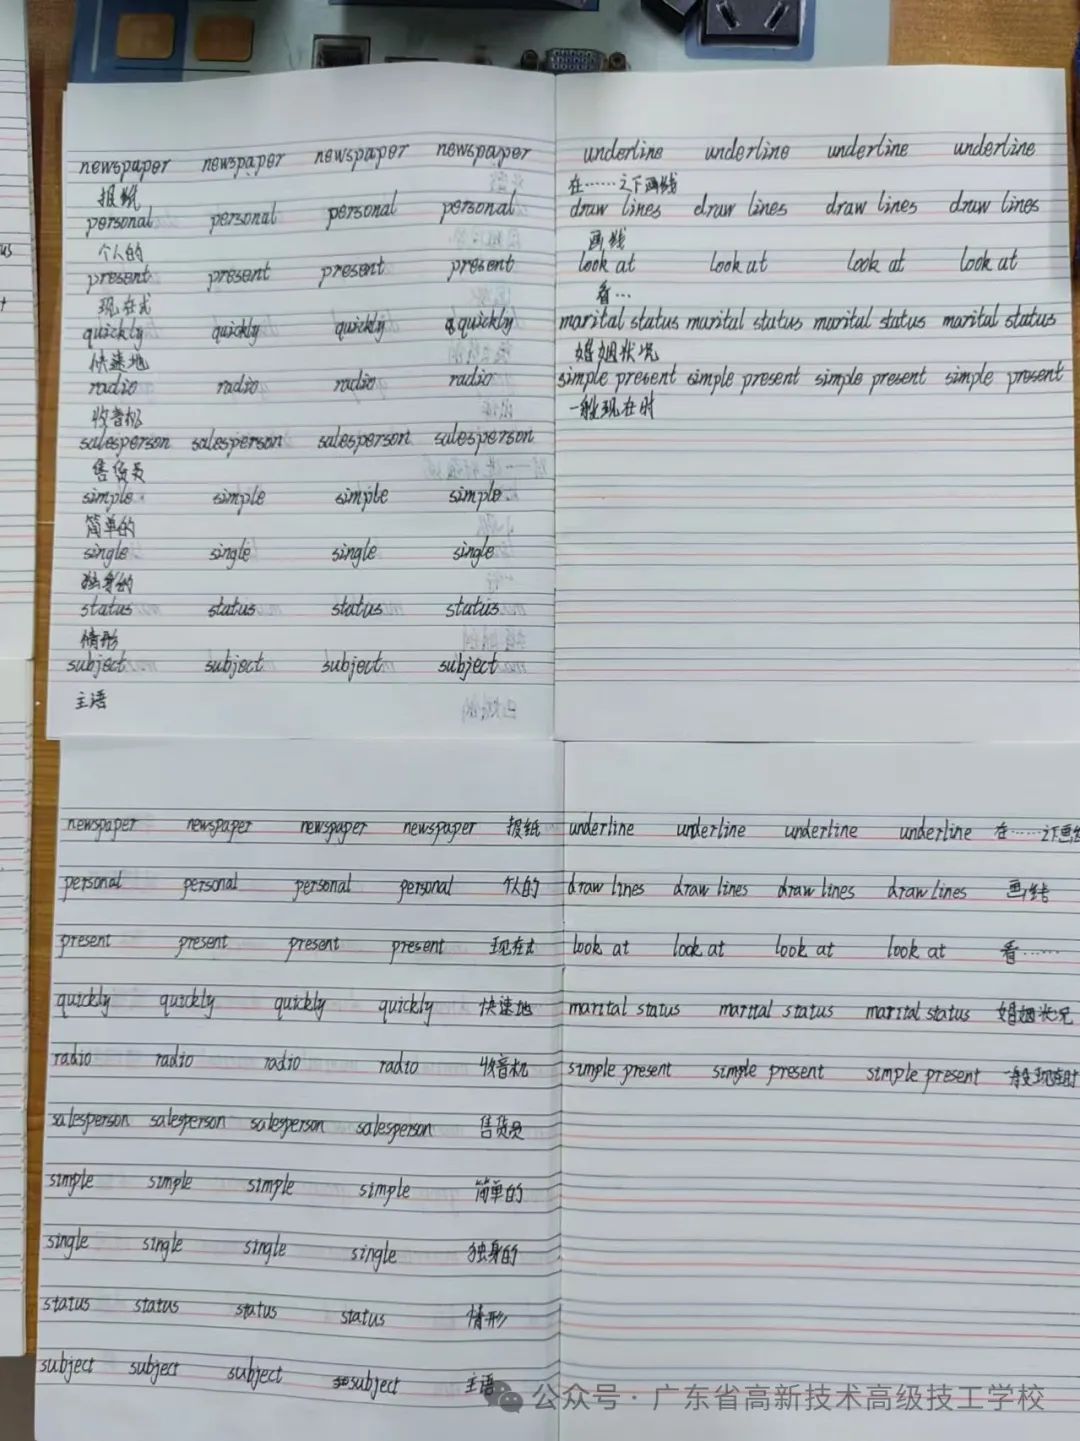 newspaper newspaper newspaper newspaper
报纸
personal personal personal personal
个人的
present present present present
现在式
quickly quickly quickly quickly
快速地
radio radio radio radio
收音机
salesperson salesperson salesperson salesperson
售货员
simple simple simple simple
简单的
single single single single
独身的
status status status status
情形
subject subject subject subject
主语
underline underline underline underline
在……之下画线
draw lines draw lines draw lines draw lines
画线
look at look at look at look at
看…
marital status marital status marital status marital status
婚姻状况
simple present simple present simple present simple present
一般现在时
newspaper newspaper newspaper newspaper 报纸
personal personal personal personal 个人的
present present present present 现在式
quickly quickly quickly quickly 快速地
radio radio radio radio 收音机
salesperson salesperson salesperson salesperson 售货员
simple simple simple simple 简单的
single single single single 独身的
status status status status 情形
subject subject subject subject 主语
underline underline underline underline 在……之下画线
draw lines draw lines draw lines draw lines 画线
look at look at look at look at 看……
marital status marital status marital status 婚姻状况
simple present simple present simple present 一般现在时
公众号·广东省高新技术高级技工学校